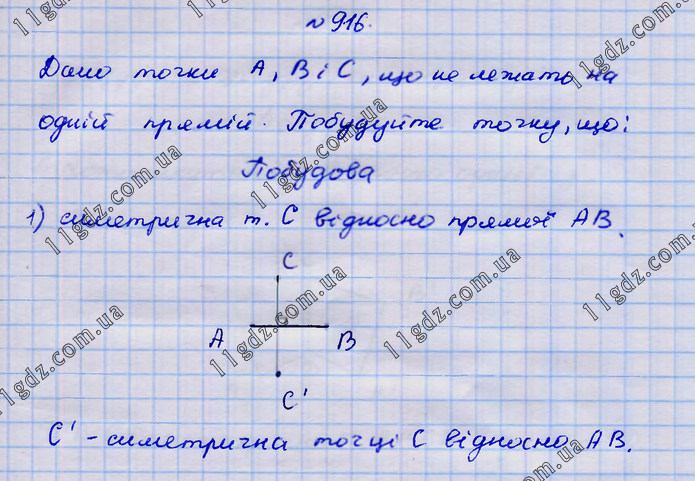 № 916.
Дано точки А, В і С, що не лежать на
одній прямій. Побудуйте точку, що:
Побудова
1) симетрична т. С відносно прямої АВ.
С
А В
С'
С' - симетрична точці С відносно АВ.
11gdz.com.ua
11gdz.com.ua
11gdz.com.ua
11gdz.com.ua
11gdz.com.ua
11gdz.com.ua
11gdz.com.ua
11gdz.com.ua
11gdz.com.ua
11gdz.com.ua